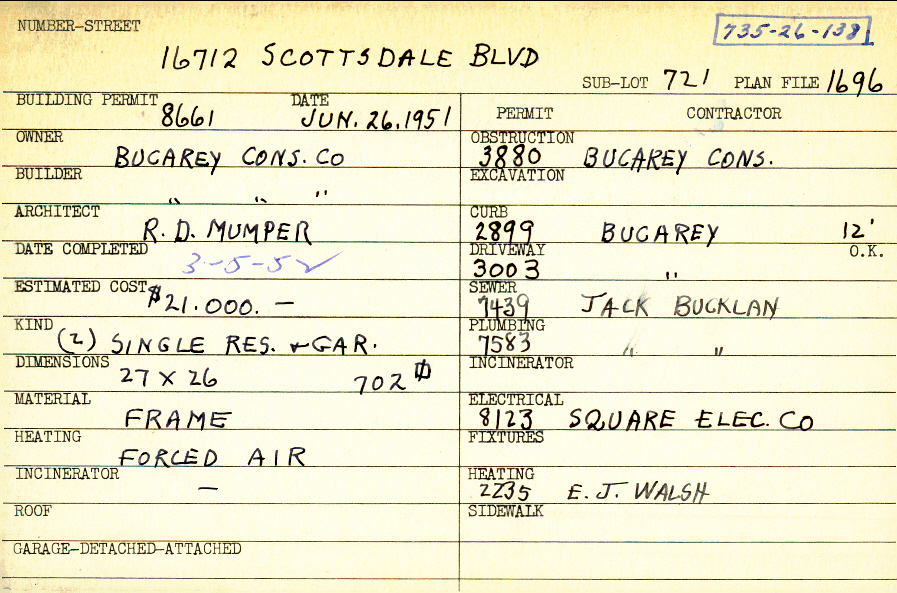 NUMBER-STREET
735-26-138
16712 SCOTTSDALE BLVD
SUB-LOT 721 PLAN FILE 1696
BUILDING PERMIT 8661 DATE JUN. 26, 1951
OWNER BUCAREY CONS. CO
BUILDER " " "
ARCHITECT R. D. MUMPER
DATE COMPLETED 3-5-52
ESTIMATED COST $21.000. —
KIND (2) SINGLE RES. & GAR.
DIMENSIONS 27 X 26 702
MATERIAL FRAME
HEATING FORCED AIR
INCINERATOR —
ROOF
GARAGE-DETACHED-ATTACHED
PERMIT CONTRACTOR
OBSTRUCTION 3880 BUCAREY CONS.
EXCAVATION
CURB 2899 BUCAREY 12'
DRIVEWAY 3003 " O.K.
SEWER 7439 JACK BUCKLAN
PLUMBING 7583 " "
INCINERATOR
ELECTRICAL 8123 SQUARE ELEC. CO
FIXTURES
HEATING 2235 E. J. WALSH
SIDEWALK